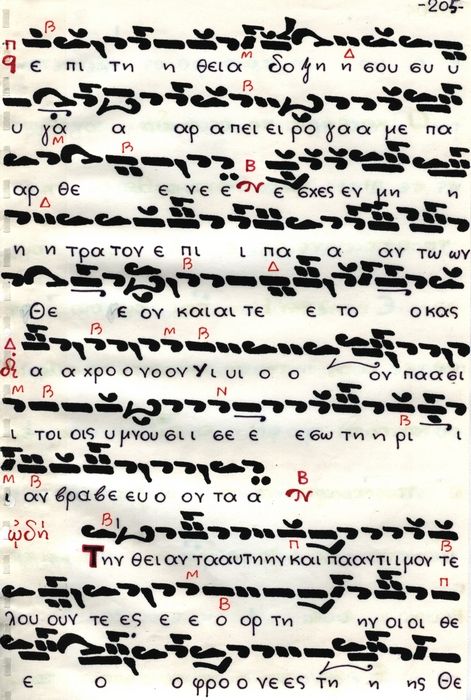 -205-
ε πι τη η θεια δο ξη η σου συ υ
υ γα α αρ απει ει ρο γα α με πα
αρ θε ε νε ε ε σχες εν μη η
η η τρα τον ε πι ι πα α αν τω ων
Θε ε ον και αι τε ε το ο κας
α α χρο ο νο ον Υι υι ο ο ον πα ασι
ι τοι οις υ μνου σι ι σε ε ε σω τη η ρι ι
ι αν βρα βε ευ ο ον τα α
ᾠδή
Την θει αν τα αυ τη ην και πα αν τι ι μον τε
λου ουν τε ες ε ε ο ορ τη ην οι οι θε
ε ο ο φρο ο νε ες τη η ης Θε